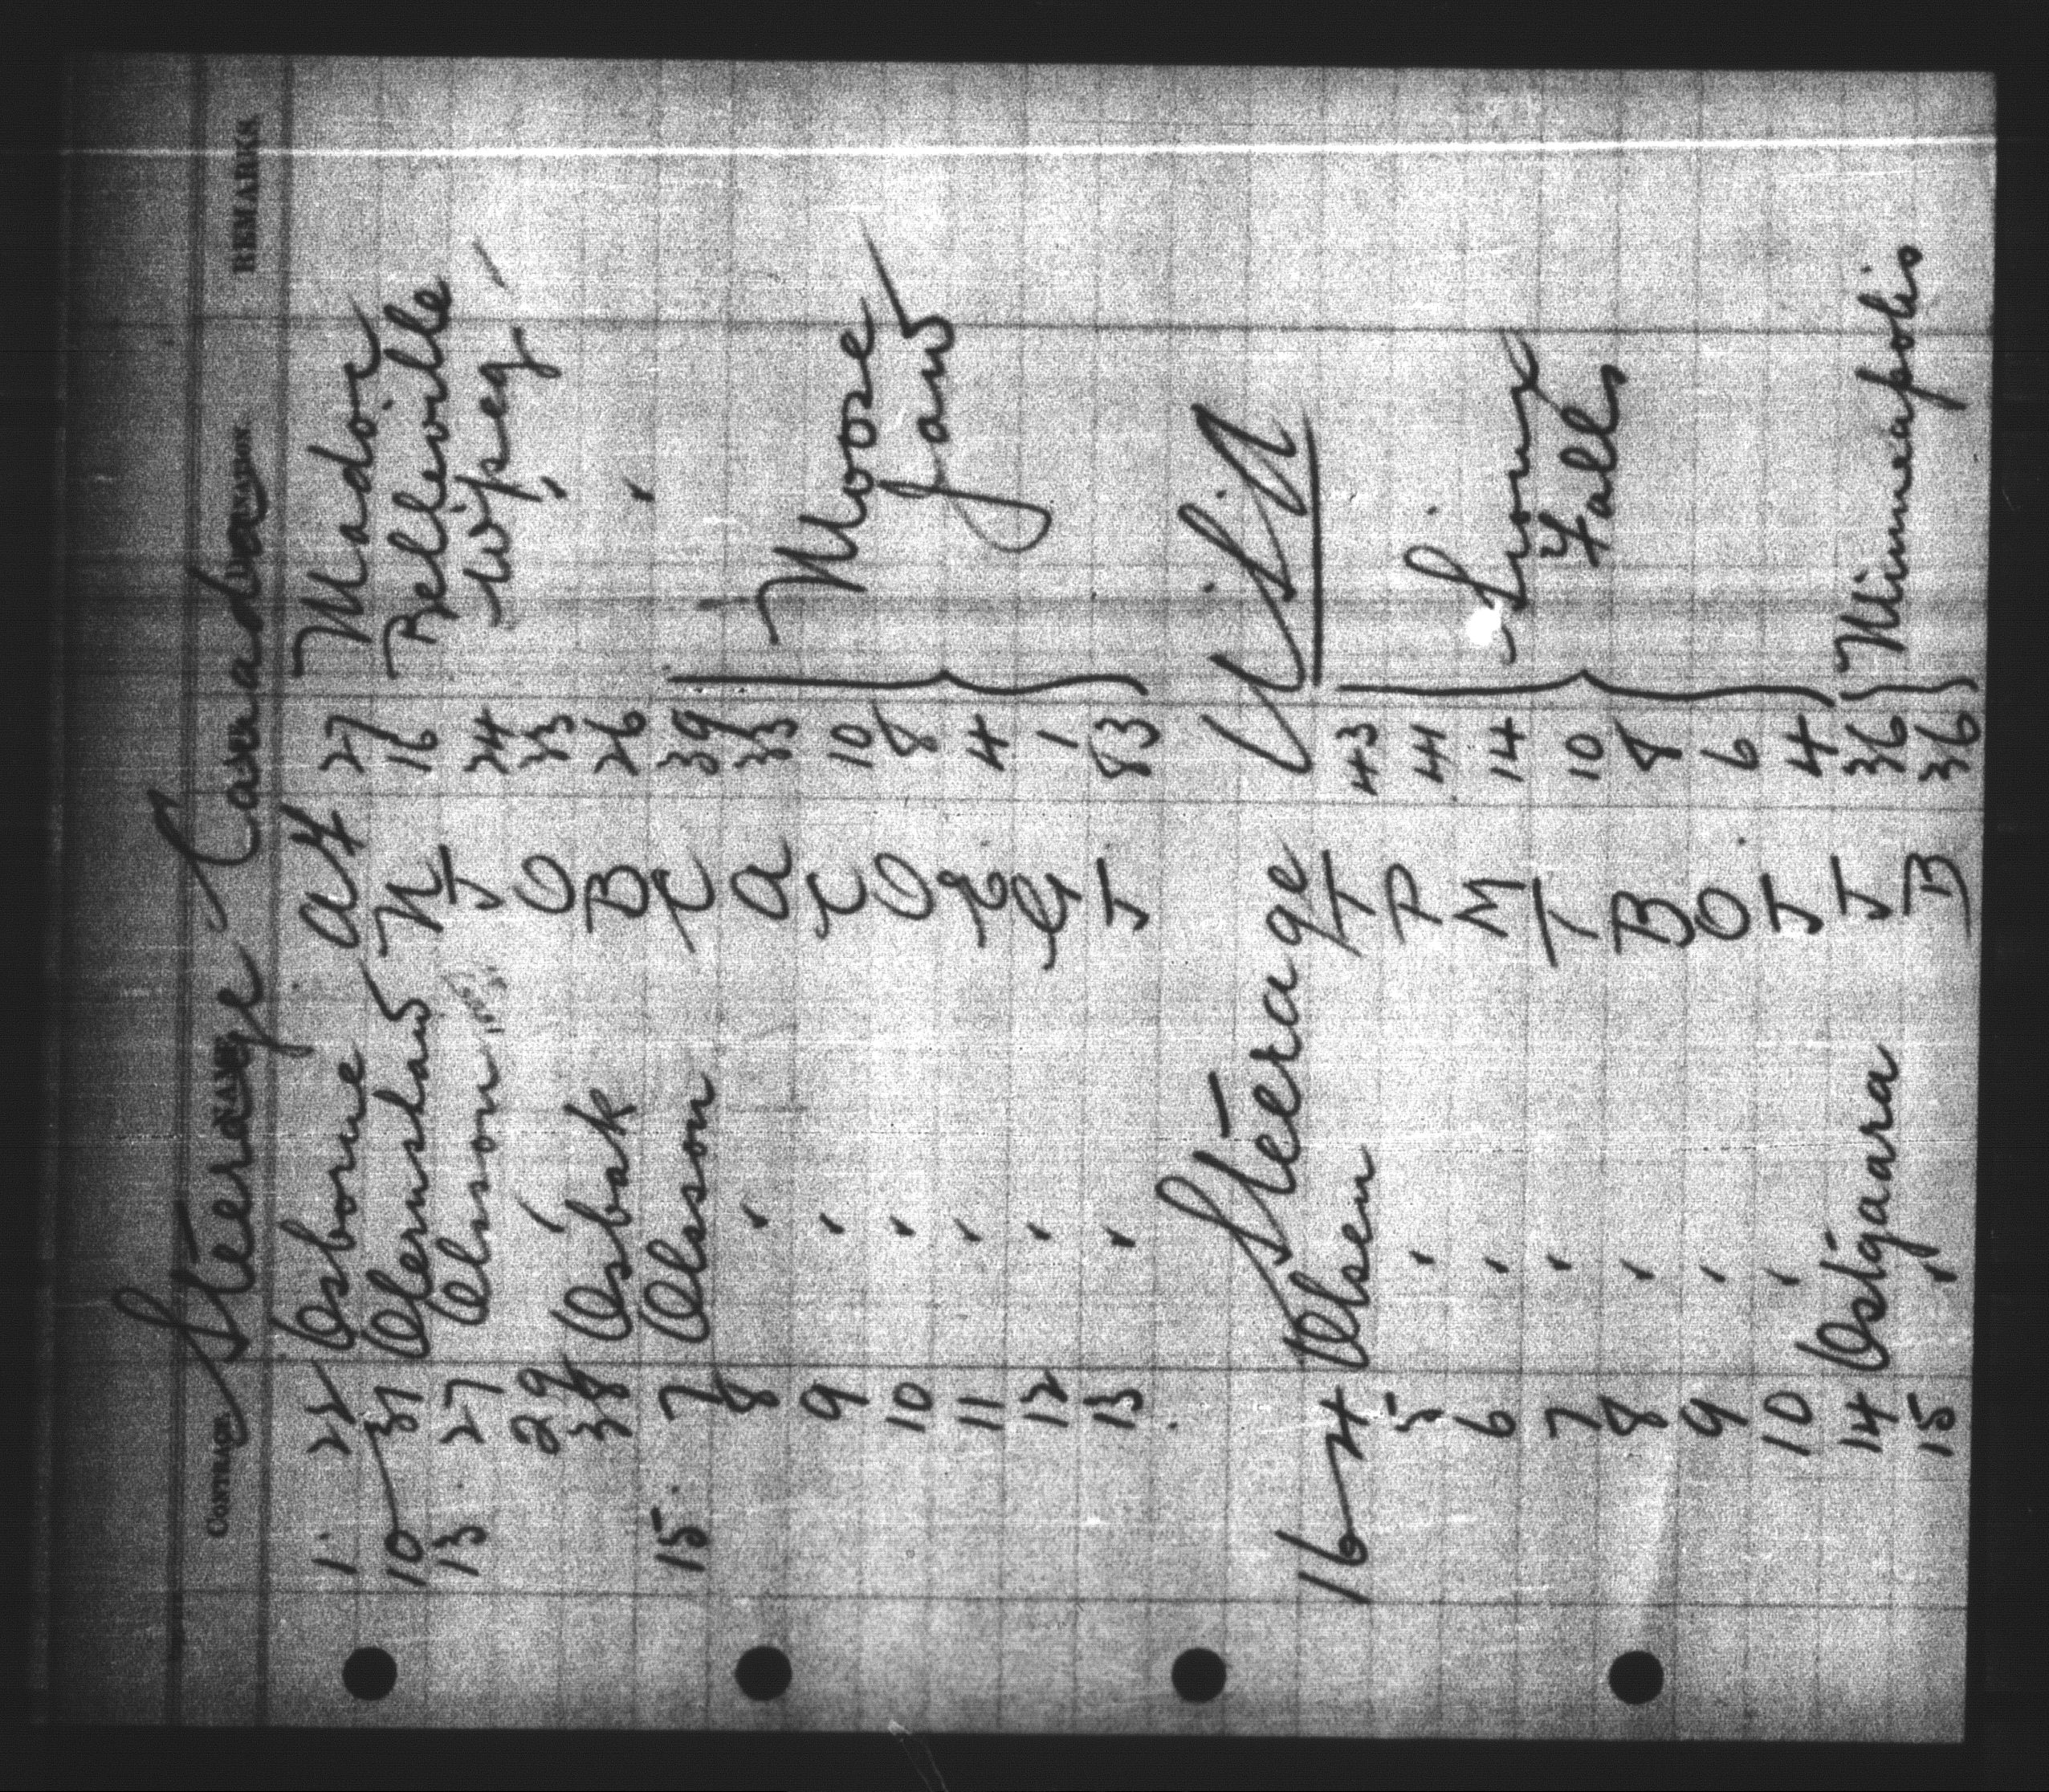 CONTRACT NAME DESTINATION REMARKS
Steerage Canada
1 22 Osborne AH 27 Madoc
10 37 Olernshaw N 16 Belleville
13 27 Olsson J 24 Wipeg
29 " O 23 "
38 Osbak B 26 "
15 7 Olsson C 39
8 " A 33
9 " C 10 Moose
10 " O 8 Jaw
11 " E 4
12 " G 1
13 " J 23
Steerage USA
16 4 Olsen T 43
5 " P 41
6 " M 14 Sioux
7 " T 10 Falls
8 " B 8
9 " O 6
10 " J 4
14 Ostgaara J 36 Minneapolis
15 " B 36